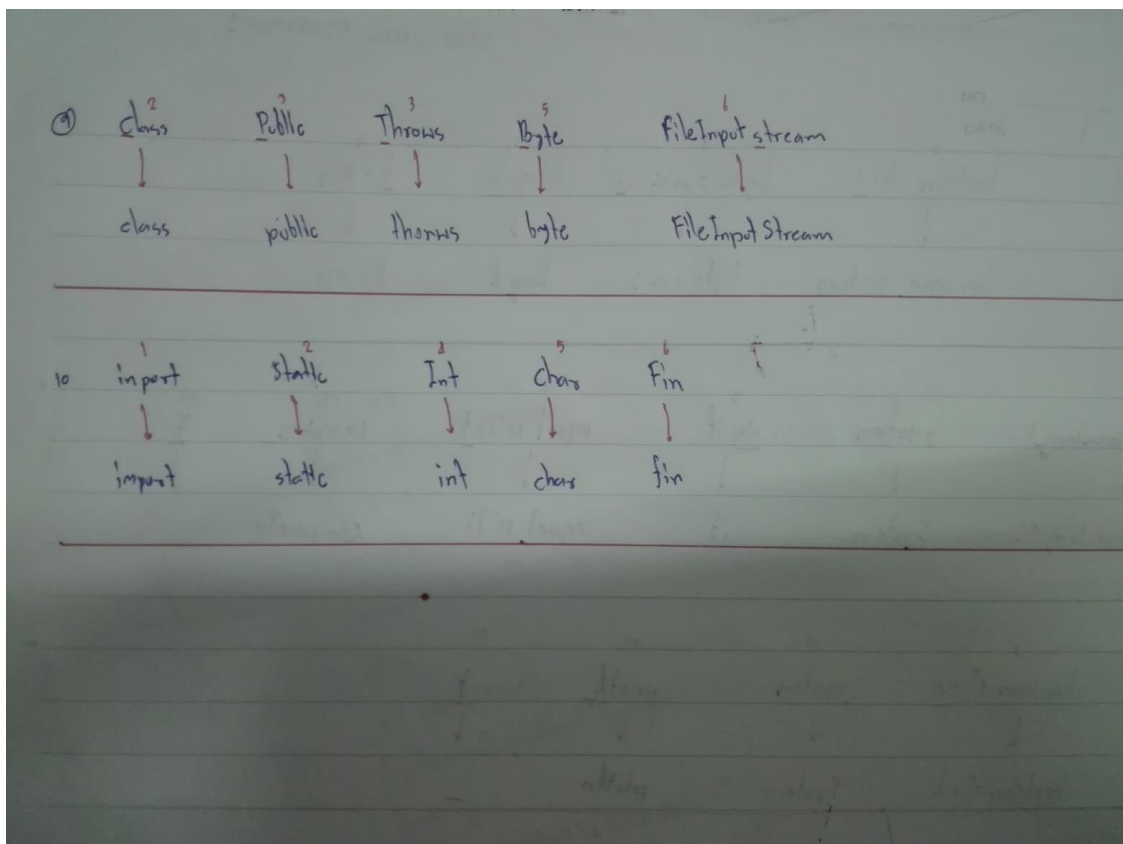 2 3 3 5 6
9 Class Public Throws Byte FileInput stream
class public thorws byte FileInput Stream
1 2 4 5 6
10 inport Static Int Char Fin
import static int char fin